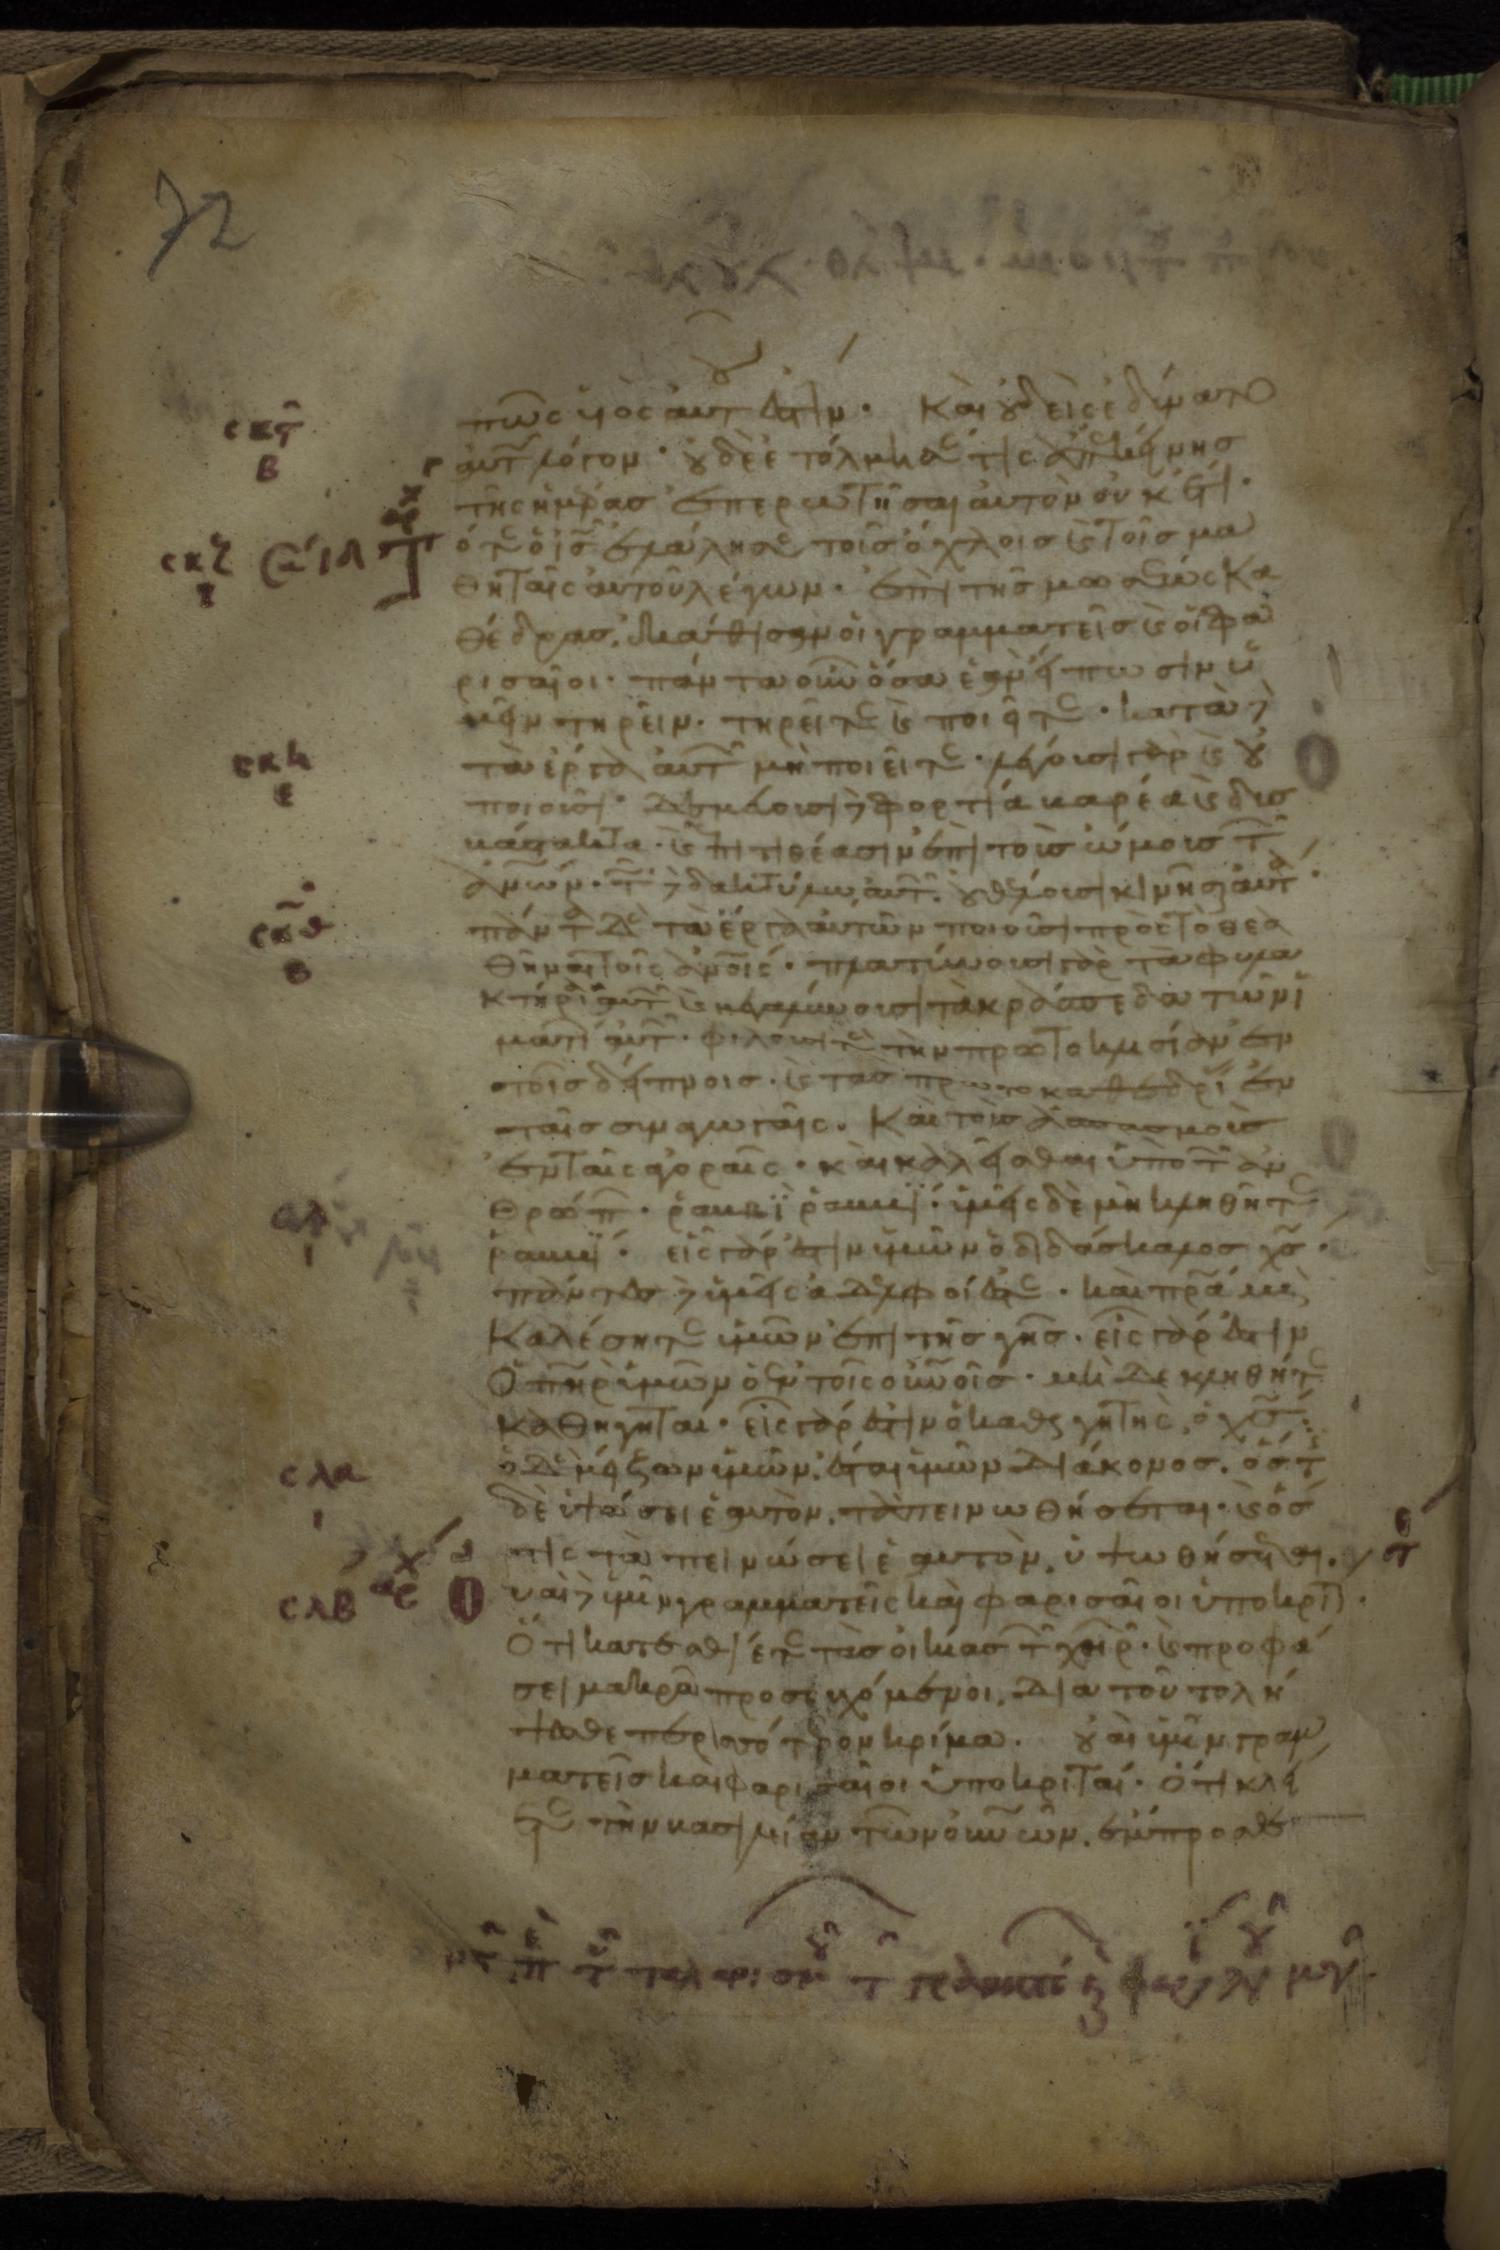 72
πῶς υἱὸς αὐτοῦ ἐστιν· Καὶ οὐδεὶς ἐδύνατο
αὐτῶ λόγον· οὐδὲ ἐτόλμησέ τις ἀπ' ἐκείνης
τῆς ἡμέρας ἐπερωτῆσαι αὐτὸν οὐκέτι·
ὁ τε ὁ ις ἐλάλησε τοῖς ὄχλοις καὶ τοῖς μα
θηταῖς αὐτοῦ λέγων· ἐπὶ τῆς μωσέως κα
θέδρας ἐκάθισαν οἱ γραμματεῖς καὶ οἱ φα
ρισαῖοι· πάντα οὖν ὅσα ἐὰν εἴπωσιν ὑ
μῖν τηρεῖν· τηρεῖτε καὶ ποιεῖτε· κατὰ δὲ
τὰ ἔργα αὐτῶν μὴ ποιεῖτε· λέγουσι γὰρ καὶ οὐ
ποιοῦσι· δεσμεύουσι δὲ φορτία βαρέα καὶ δυσ
βάστακτα· καὶ ἐπιτιθέασιν ἐπὶ τοὺς ὤμους τῶν
ἀνθρώπων· τῶ δὲ δακτύλω αὐτῶν οὐ θέλουσι κινῆσαι αὐτά·
πάντα δὲ τὰ ἔργα αὐτῶν ποιοῦσι πρὸς τὸ θεα
θῆναι τοῖς ἀνοις· πλατύνουσι γὰρ τὰ φυλα
κτήρια αὐτῶν καὶ μεγαλύνουσι τὰ κράσπεδα τῶν ἱ
ματίων αὐτῶν· φιλοῦσι τε τὴν πρωτοκλισίαν ἐν
τοῖς δείπνοις· καὶ τὰς πρωτοκαθεδρίας ἐν
ταῖς συναγωγαῖς· Καὶ τοὺς ἀσπασμοὺς
ἐν ταῖς ἀγοραῖς· καὶ καλεῖσθαι ὑπὸ τῶν ἀν
θρώπων· ῥαββὶ ῥαββί· ὑμεῖς δὲ μὴ κληθῆτε
ῥαββί· εἷς γάρ ἐστιν ὑμῶν ὁ διδάσκαλος χς·
πάντες δὲ ὑμεῖς ἀδελφοί ἐστε· καὶ πρα μὴ
καλέσητε ὑμῶν ἐπὶ τῆς γῆς· εἷς γάρ ἐστιν
ὁ πηρ ὑμῶν ὁ ἐν τοῖς οὐνοῖς· μὴ δὲ κληθῆτε
καθηγηταί· εἷς γάρ ἐστιν ὁ καθηγητής ὁ χς·
ὁ δὲ μείζων ὑμῶν ἔσται ὑμῶν διάκονος· ὅστις
δὲ ὑψώσει ἑαυτὸν ταπεινωθήσεται· καὶ ὅσ
τις ταπεινώσει ἑαυτὸν ὑψωθήσεται·
οὐαὶ δὲ ὑμῖν γραμματεῖς καὶ φαρισαῖοι ὑποκριταί·
ὅτι κατεσθίετε τὰς οἰκίας τῶν χηρῶν· καὶ προφά
σει μακρᾶ προσευχόμενοι διὰ τοῦτο λή
ψεσθε περισσότερον κρίμα· οὐαὶ ὑμῖν γραμ
ματεῖς καὶ φαρισαῖοι ὑποκριταί· ὅτι κλεί
ετε τὴν βασιλείαν τῶν οὐνῶν ἔμπροσθε
σκς
β
σκζ
σκη
ε
σκθ
β
σλ
σλα
ι
σλβ